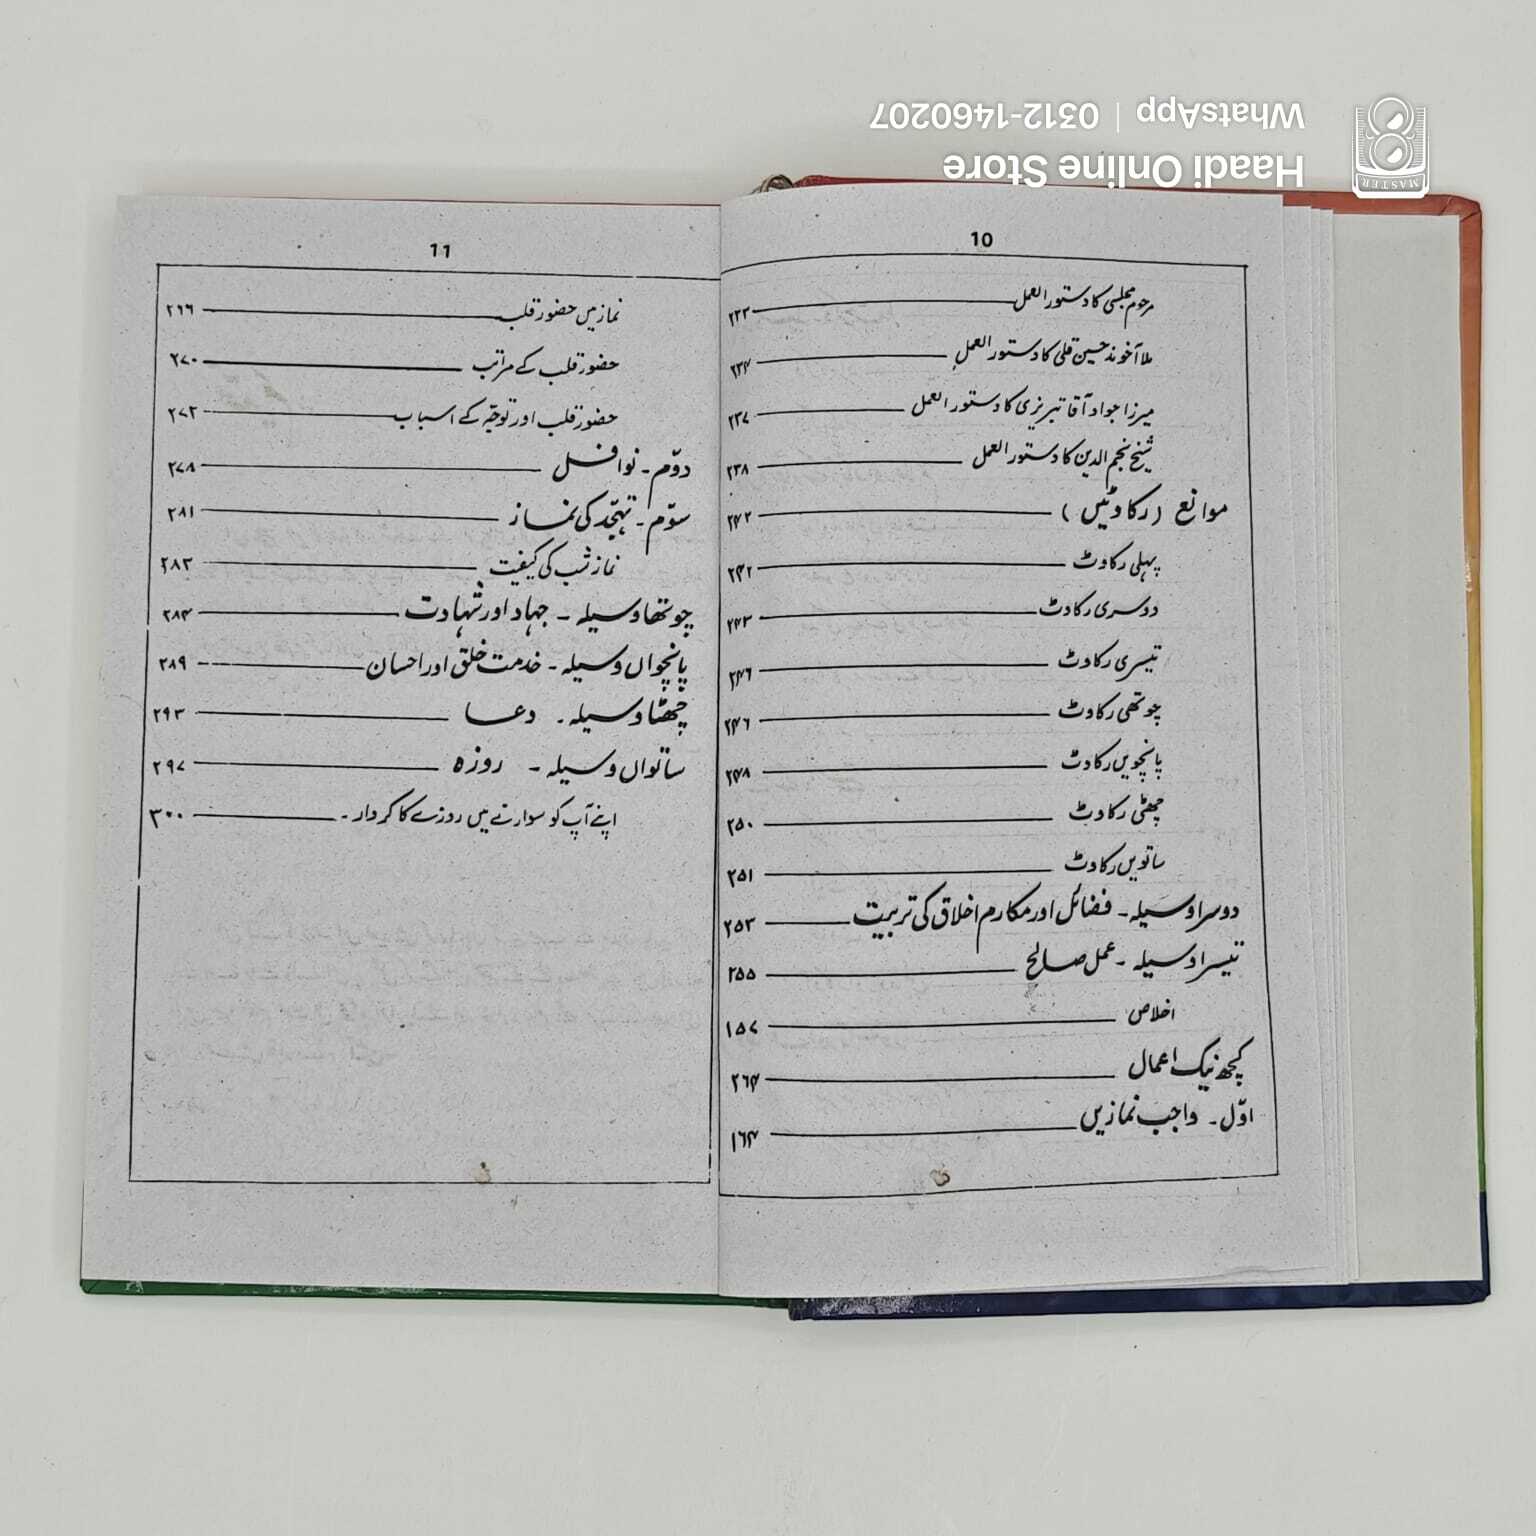 Haadi Online Store
WhatsApp | 0312-1460207
MASTER
10
مرحوم مجلسی کا دستور العمل ۲۳۳
ملا آخوند حسین قلی کا دستور العمل ۲۳۴
میرزا جواد آقا تبریزی کا دستور العمل ۲۳۷
شیخ نجم الدین کا دستور العمل ۲۳۸
موانع (رکاوٹیں) ۲۴۲
پہلی رکاوٹ ۲۴۲
دوسری رکاوٹ ۲۴۳
تیسری رکاوٹ ۲۴۶
چوتھی رکاوٹ ۲۴۶
پانچویں رکاوٹ ۲۴۸
چھٹی رکاوٹ ۲۵۰
ساتویں رکاوٹ ۲۵۱
دوسرا وسیلہ - فضائل اور مکارم اخلاق کی تربیت ۲۵۳
تیسرا وسیلہ - عمل صالح ۲۵۵
اخلاص ۱۵۷
کچھ نیک اعمال ۲۶۴
اوّل - واجب نمازیں ۱۶۴
11
نماز میں حضور قلب ۲۶۶
حضور قلب کے مراتب ۲۷۰
حضور قلب اور توجّہ کے اسباب ۲۷۲
دوّم - نوافل ۲۷۸
سوّم - تہجّد کی نماز ۲۸۱
نماز شب کی کیفیت ۲۸۳
چوتھا وسیلہ - جہاد اور شہادت ۲۸۴
پانچواں وسیلہ - خدمت خلق اور احسان ۲۸۹
چھٹا وسیلہ - دعا ۲۹۳
ساتواں وسیلہ - روزہ ۲۹۷
اپنے آپ کو سوارنے میں روزے کا کردار - ۳۰۰